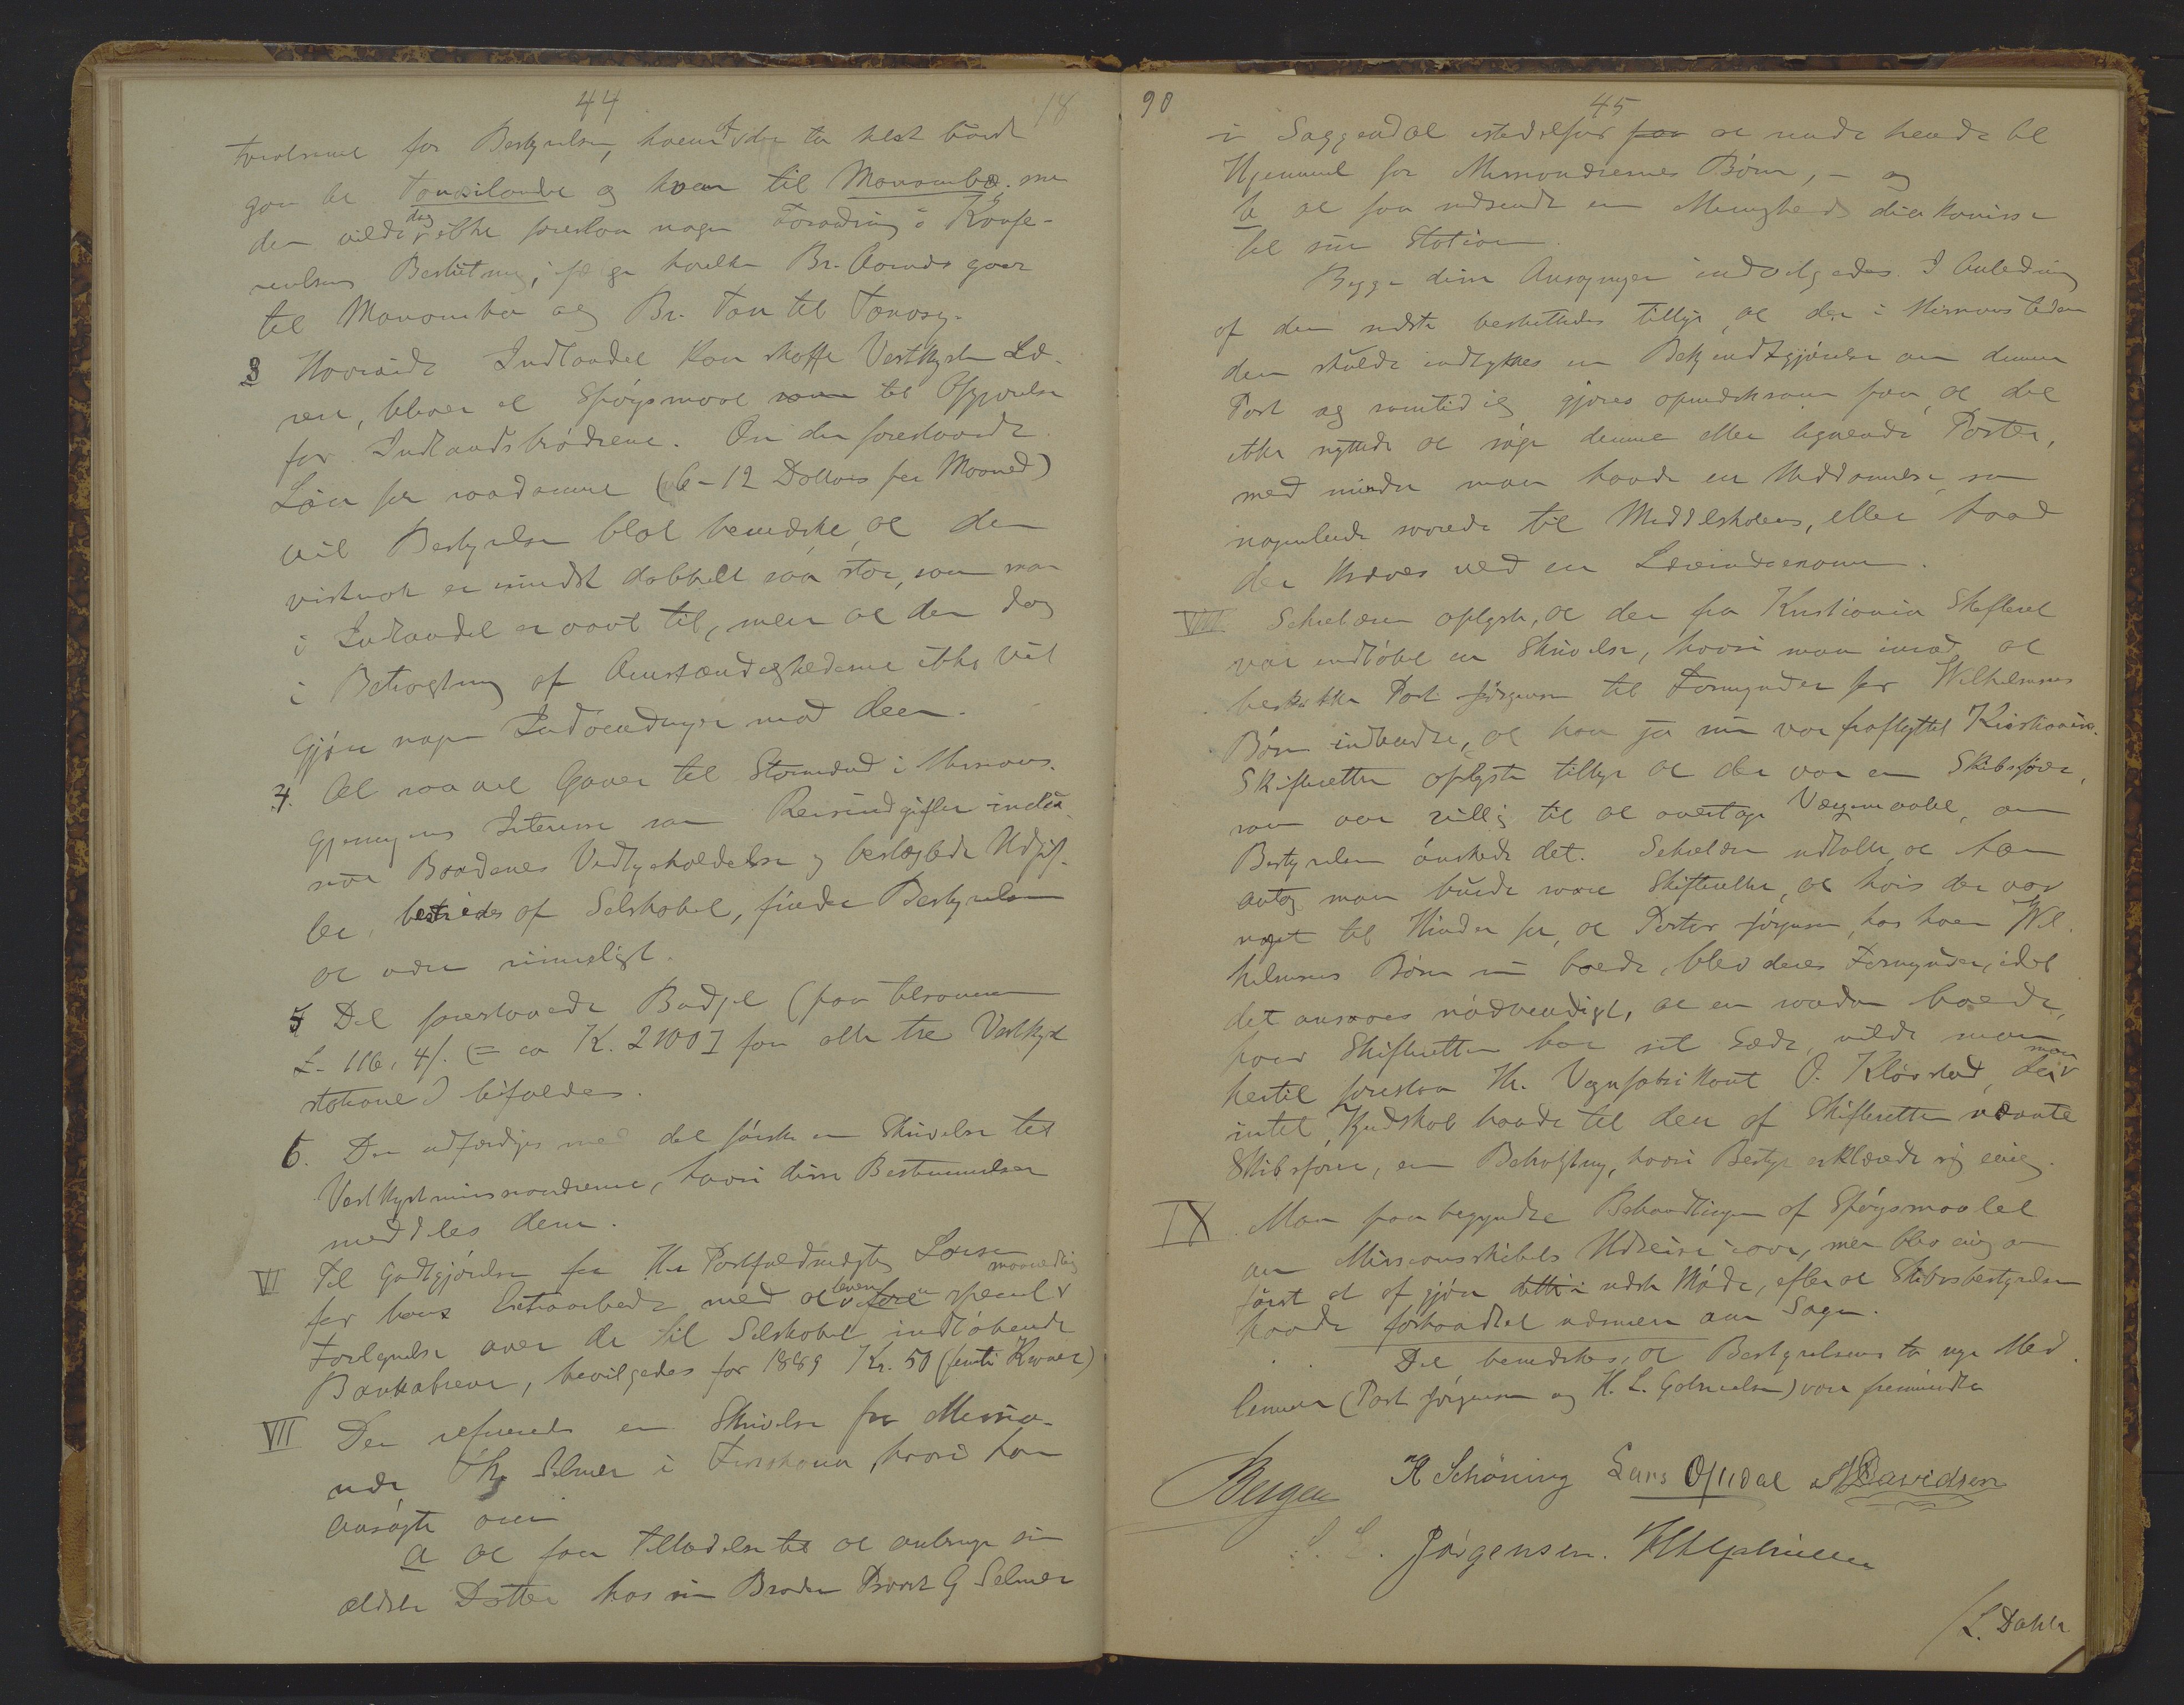 44
18
for Bestyrelsen, hvem der helst burde
gaa til Tanosilandet og hvem til Manombo, men
den vilde dog ikke foreslaa nogen Forandring i Konfe-
rentsens Beslutning, ifølge hvilken Br. Aarnes gaar
til Manombo og Br. Tou til Tanosy.
3 Hvorvidt Indlandet kan skaffe Vestkysten Læ-
rere, bliver et Spørgsmaal til Afgjørelse
for Indlandsbrødrene. Om den foreslaaede
Løn for saadanne (6-12 Dollars per Maaned)
vil Bestyrelsen blot bemærke, at den
vistnok er mindst dobbelt saa stor, som man
i Indlandet er vant til, men at den dog
i Betragtning af Omstændighederne ikke vil
gjøre nogen Indvendinger mod den.
4. At saavel Gaver til Stormænd i Missions-
gjerningens Interesse som Reiseudgifter
Baadenes Vedligeholdelse og beslægtede Udgif-
ter, bestrides af Selskabet, finder Bestyrelsen
at være rimeligt.
5 Det foreslaaede Budget (paa tilsammen
£ 116, 4/. (= ca K. 2100] for alle tre Vestkyst
stationer) bifaldes.
6. Der udfærdiges med det første en Skrivelse til
Vestkystmissionærerne, hvori disse Bestemmelser
meddeles dem.
VI Til Godtgjørelse for Hr Postfuldmægtig Larsen
for hans Extraarbeide med at levere maanedlig speciel
Fortegnelse over de til Selskabet indløbende
Bankobreve, bevilgedes for 1889 Kr. 50 (femti Kroner)
VII Der refereredes en Skrivelse fra Missio-
nær Selmer i, hvori han
ansøgte om
a at faa Tilladelse til at anbringe sin
ældste Datter hos sin Broder Provst G Selmer
90
45
i Saggendal istedetfor at sende hende til
Hjemmet for Missionærernes Børn, - og
b at faa udsendt en Menighedsdiakonisse
til sin Station.
Begge disse Ansøgninger indvilgedes. I Anledning
af den sidste besluttedes tillige, at der i Missionstidenden
skulde indrykkes en Bekjendtgjørelse om denne
Post og samtidig gjøres opmærksom paa, at det
ikke nyttede at søge denne eller lignende Poster,
med mindre man havde en Uddannelse, som
nogenlunde svarede til Middelskolens, eller hvad
der kræves ved en Lærerindeexamen.
VIII Sekretæren oplyste, at der fra Kristiania Skifteret
var indløbet en Skrivelse, hvori man imod at
beskikke Past. Jørgensen til Formynder for Wilhelmsens
Børn indvendte, at han jo nu var fraflyttet Kristiania.
Skifteretten oplyste tillige at der var en Skibsfører,
som var villig til at overtage Værgemaalet, om
Bestyrelsen ønskede det. Sekretæren udtalte, at han
antog man burde svare Skifteretten, at hvis der var
noget til Hinder for, at Pastor Jørgensen, hos hvem Wil-
helmsens Børn nu boede, blev deres Formynder, idet
det ansaaes nødvendigt, at en saadan boede,
hvor Skifteretten har sit Sæde, vilde man
hertil foreslaa Hr. Vognfabrikant O. Kløvstad, da man
intet Kjendskab havde til den af Skifteretten nævnte
Skibsfører, en Betragtning, hvori Bestyr. erklærede sig enig.
IX. Man paabegyndte Behandlingen af Spørgsmaalet
om Missionsskibets Udreise iaar, men blev enig om
først at afgjøre dette i næste Møde, efter at Skibsbestyrelsen
havde forhandlet nærmere om Sagen.
Det bemærkes, at Bestyrelsens to nye Med-
lemmer (Past Jørgensen og H. L. Gabrielsen) vare fremmødte
Borgen
K Schöning Lars Oftedal Davidsen
Jørgensen. Gabrielsen
L. Dahle